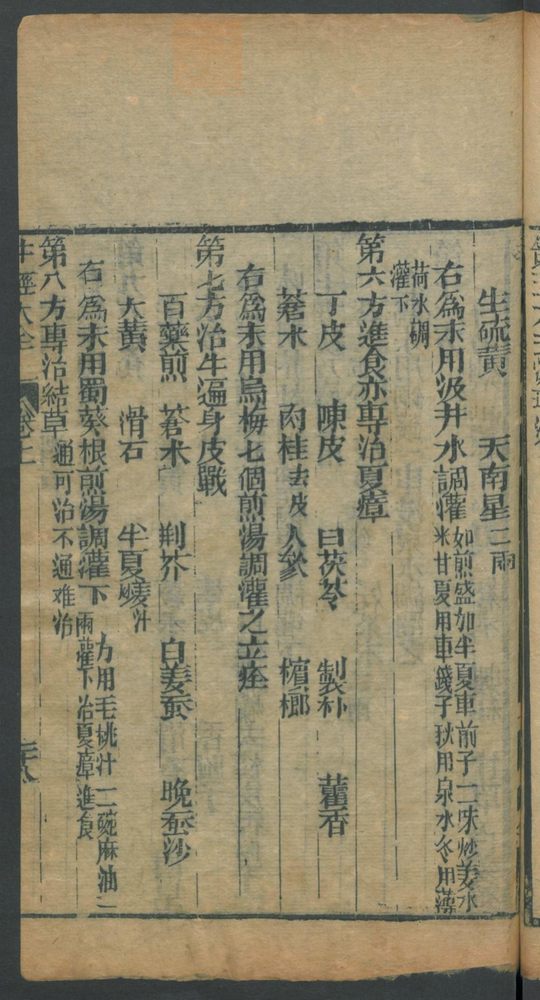 生硫黄 天南星二兩
右為末用汲井水調灌如煎盛加半夏車前子二味炒姜水
米甘夏用車錢子秋用泉水冬用薄
荷水調
灌下
第六方進食亦専治夏瘴
丁皮 陳皮 白茯苓 製朴 藿香
蒼朮 肉桂去皮 人參 檳榔
右為末用烏梅七個煎湯調灌之立痊
第七方治牛遍身皮戰
百藥煎 蒼朮 荆芥 白姜蚕 晚蚕沙
大黄 滑石 半夏汁
右為末用蜀葵根煎湯調灌下 方用毛桃汁二碗麻油一
兩灌下治夏瘴進食
第八方專治結草通可治不通难治
牛經大全 卷上